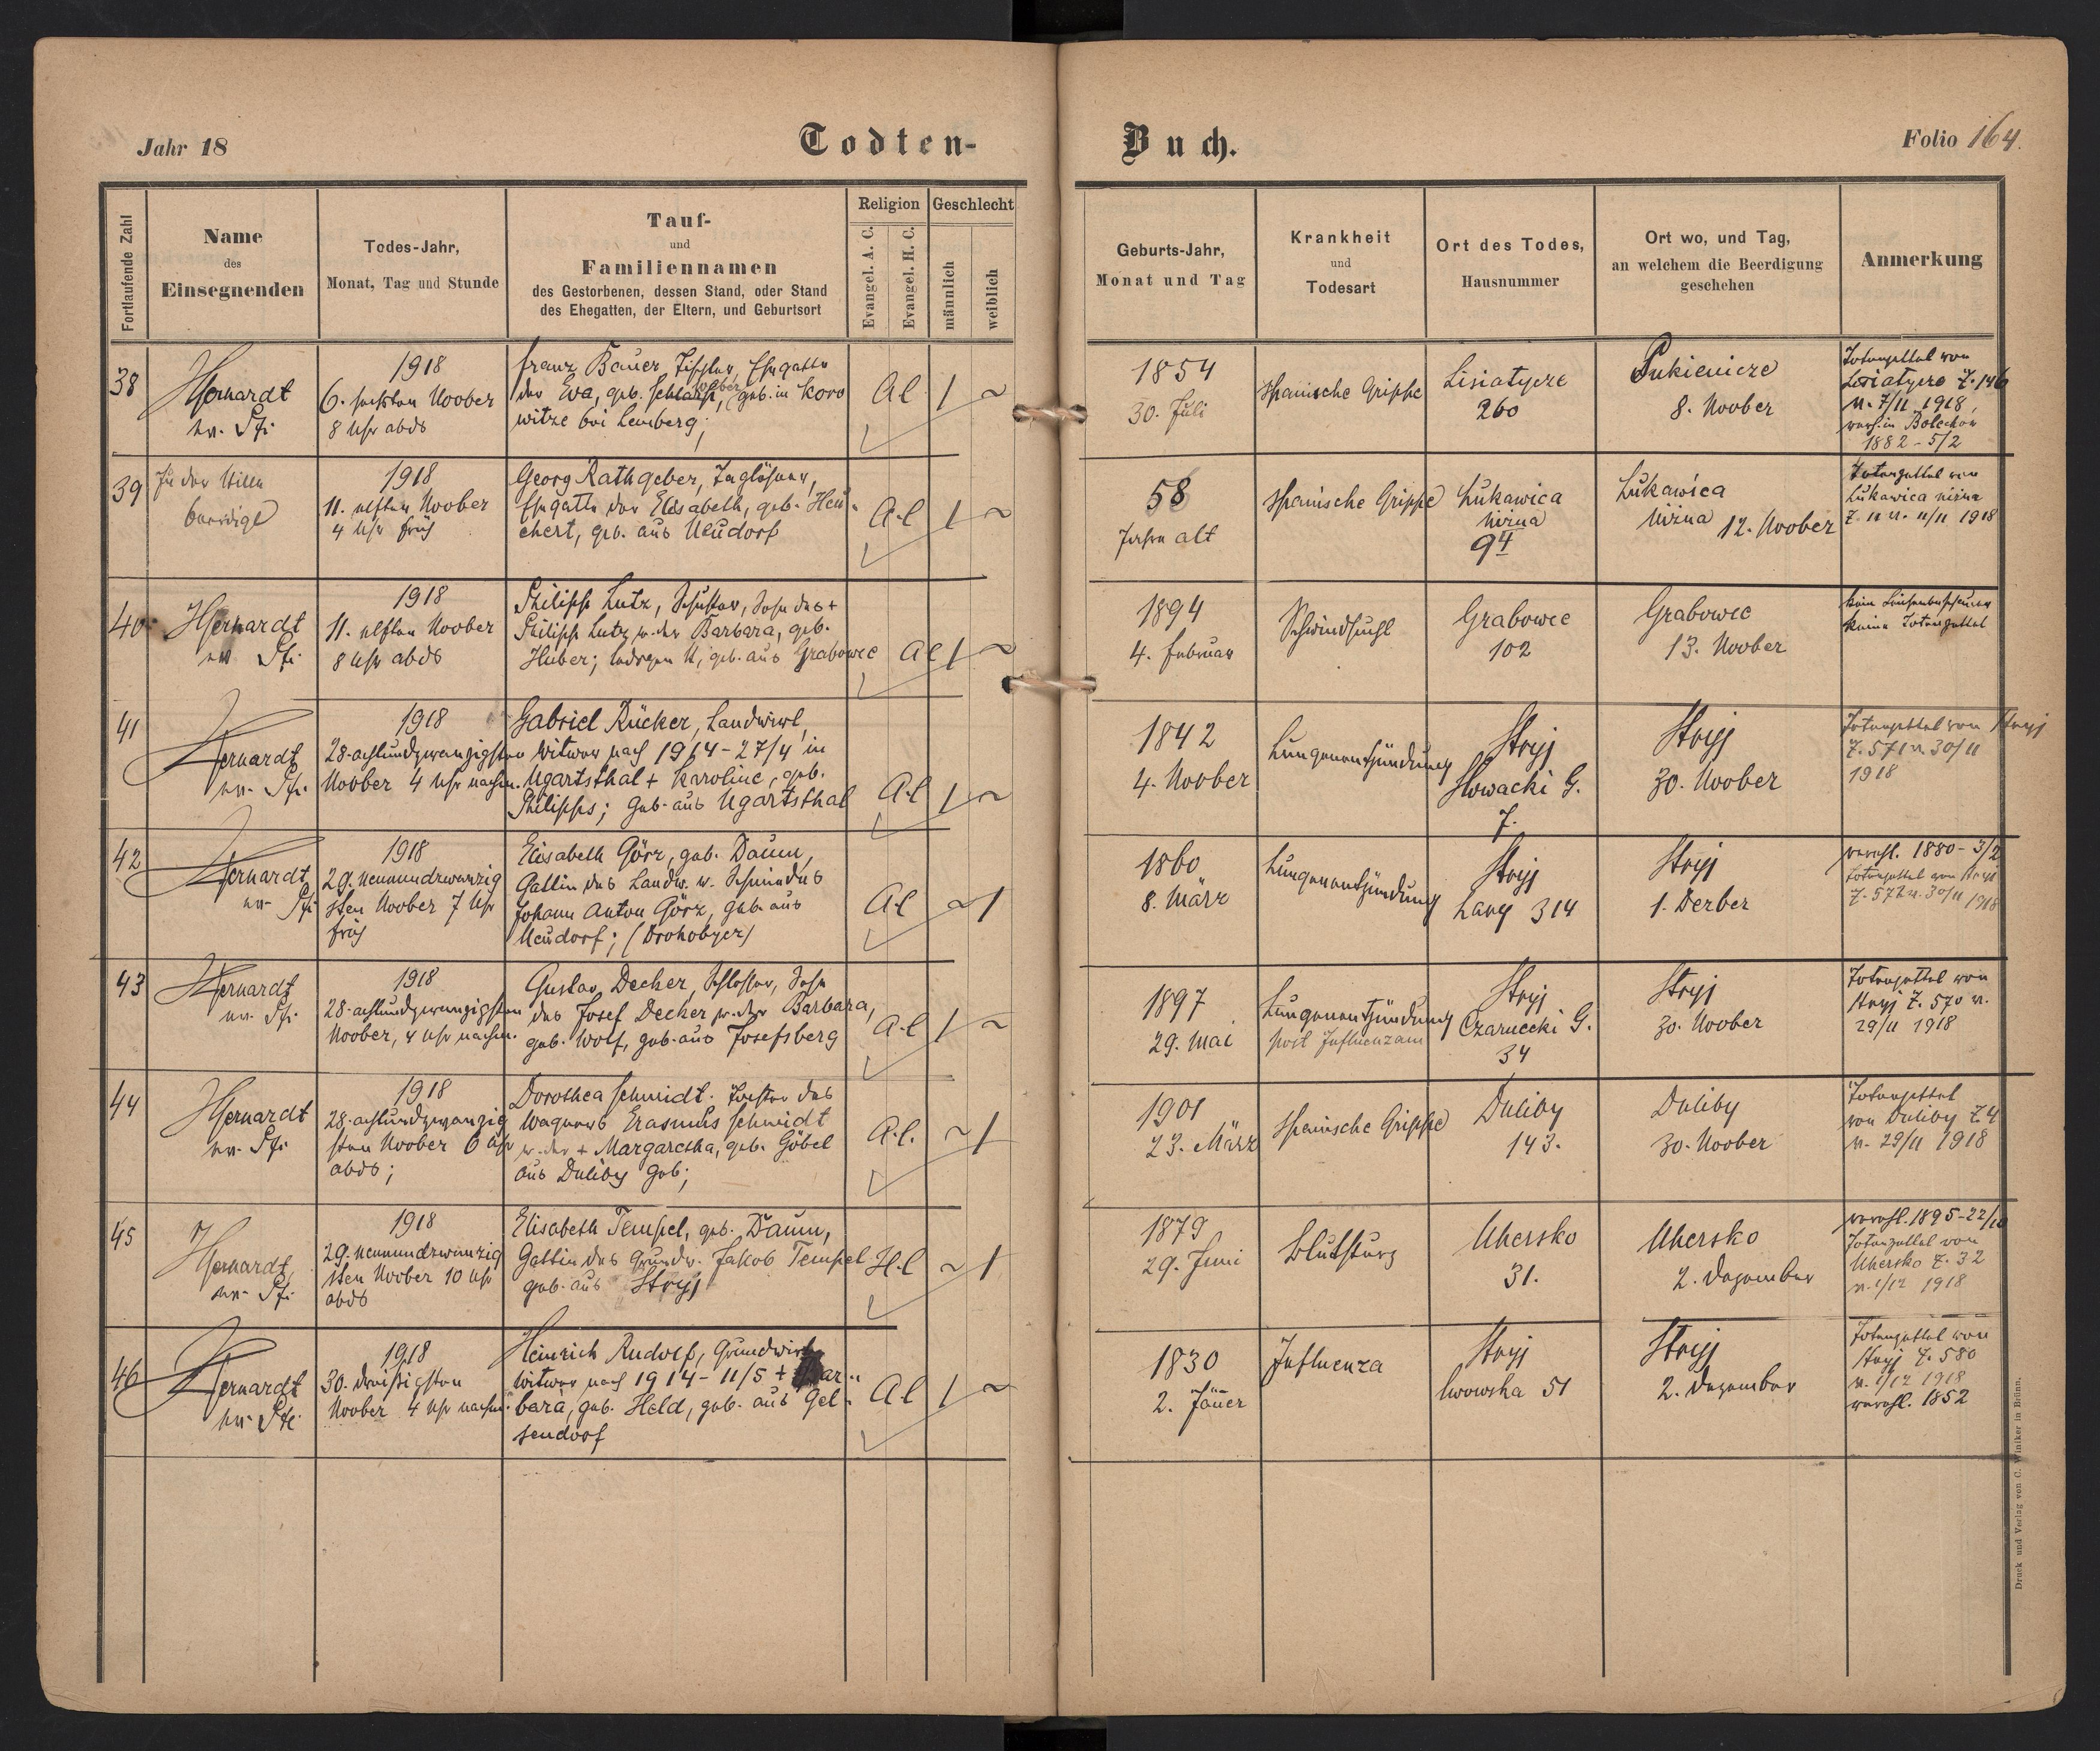 Jahr 18
Todten-
Buch.
Folio 164.
Fortlaufende Zahl
Name
des
Einsegnenden
Todes-Jahr,
Monat, Tag und Stunde
Tauf-
und
Familiennamen
des Gestorbenen, dessen Stand, oder Stand
des Ehegatten, der Eltern, und Geburtsort
Religion
Evangel. A. C.
Evangel. H. C.
Geschlecht
männlich
weiblich
Geburts-Jahr,
Monat und Tag
Krankheit
und
Todesart
Ort des Todes,
Hausnummer
Ort wo, und Tag,
an welchem die Beerdigung
geschehen
Anmerkung
38
1918
6. sechsten Novber
8 Uhr abds
Franz Bauer, Tischler, Ehegatte
der Eva, geb. geb. in Koro
witze bei Lemberg;
1854
30. Juli
Spanische Grippe
Lisiatycze
260
Pukienicze
8. Novber
Totenzettel von
Lisiatycze Z. 146
v. 7/11 1918,
in Bolechow
1882 - 5/2
39
In der Stille
beerdigt
1918
11. elften Novber
4 Uhr früh
Georg Rathgeber, Taglöhner,
Ehegatte der Elisabeth, geb. Heu-
chert, geb. aus Neudorf
A.C
58
Jahre alt
Spanische Grippe
Łukawica
niżna
94
Łukawica
niżna 12. Novber
Totenzettel von
Łukawica niżna
Z. 11 v. 11/11 1918
40
1918
11. elften Novber
8 Uhr abds
Philipp Lutz, Schuster, Sohn des +
Philipp Lutz u. der Barbara, geb.
Huber; ledigen St, geb. aus Grabowce
1894
4. Februar
Schwindsucht
Grabowce
102
Grabowce
13. Novber
kein Leichenbeschauer
keine Totenzettel
41
1918
28. achtundzwanzigsten
Novber 4 Uhr nachm.
Gabriel Rücker, Landwirt,
Witwer nach 1914 - 27/4 in
Ugartsthal + Karoline, geb.
Philipps; geb. aus Ugartsthal
A.C
1842
4. Novber
Lungenentzündung
Stryj
Słowacki G.
7.
Stryj
30. Novber
Totenzettel von Stryj
Z. 571 v. 30/11
1918
42
1918
29. neunundzwanzig
sten Novber 7 Uhr
früh
Elisabeth Görz, geb. Daum,
Gattin des Landw. u. Schmiedes
Johann Anton Görz, geb. aus
Neudorf; (Drohobycz)
A.C
1860
8. März
Lungenentzündung
Stryj
Łany 314
Stryj
1. Dezber
verehl. 1880 - 3/2
Totenzettel von Stryj
Z. 572 v. 30/11 1918
43
1918
28. achtundzwanzigsten
Novber, 4 Uhr nachm.
Gustav Decker, Schlosser, Sohn
des Josef Decker u. der Barbara,
geb. Wolf, geb. aus Josefsberg
A.C
1897
29. Mai
Lungenentzündung
post Influenzam
Stryj
Czarnecki G.
34
Stryj
30. Novber
Totenzettel von
Stryj Z. 570 v.
29/11 1918
44
1918
28. achtundzwanzig
sten Novber 6 Uhr
abds;
Dorothea Schmidt. Tochter des
Wagners Erasmus Schmidt
u. der + Margaretha, geb. Göbel
aus Duliby geb;
A.C.
1901
23. März
Spanische Grippe
Duliby
143.
Duliby
30. Novber
Totenzettel
von Duliby Z. 4
v. 29/11 1918
45
1918
29. neunundzwanzig
sten Novber 10 Uhr
abds
Elisabeth Tempel, geb. Daum,
Gattin des Grundw. Jakob Tempel
geb. aus Stryj
H.C
1879
29. Juni
Blutsturz
Uhersko
31.
Uhersko
2. Dezember
verehl. 1895 - 22/10
Totenzettel von
Uhersko Z. 32
v. 1/12 1918
46
1918
30. dreißigsten
Novber 4 Uhr nachm.
Heinrich Rudolf, Grundwirt
Witwer nach 1914 - 11/5 + Bar-
bara, geb. Held, geb. aus Gel-
sendorf
1830
2. Jänner
Influenza
Stryj
Lwowska 51
Stryj
2. Dezember
Totenzettel von
Stryj Z. 580
v. 1/12 1918
verehl. 1852
Druck und Verlag von C. Winiker in Brünn.